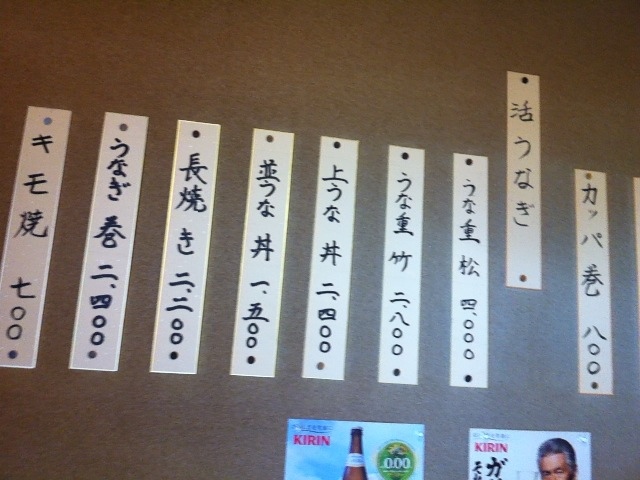 カッパ巻 八〇〇
活うなぎ
うな重 松 四、〇〇〇
うな重 竹 二、八〇〇
上うな丼 二、四〇〇
並うな丼 一、五〇〇
長焼き 二、二〇〇
うなぎ巻 二、四〇〇
キモ焼 七〇〇
KIRIN
0.00
KIRIN
ガ